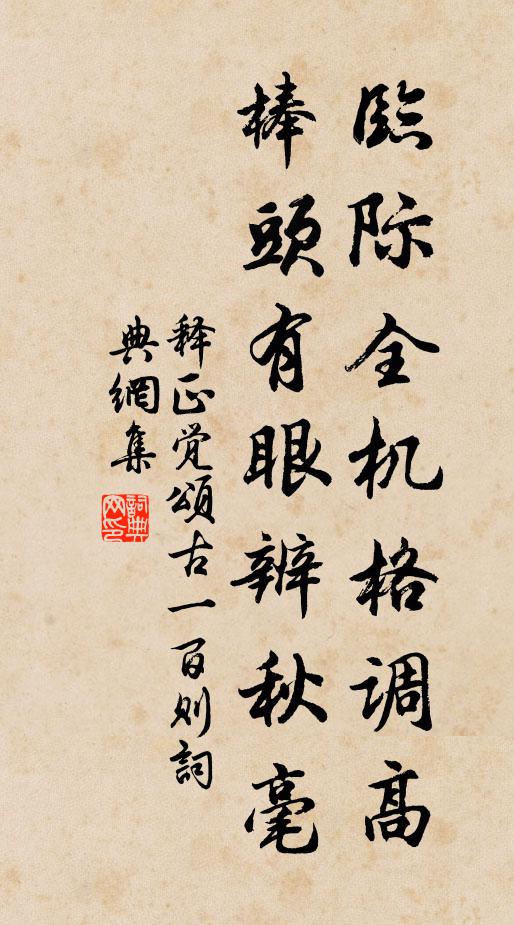 臨际全机格调高
棒頭有眼辨秋毫
释正觉頌古一百则詞
典網集
詞典
网印